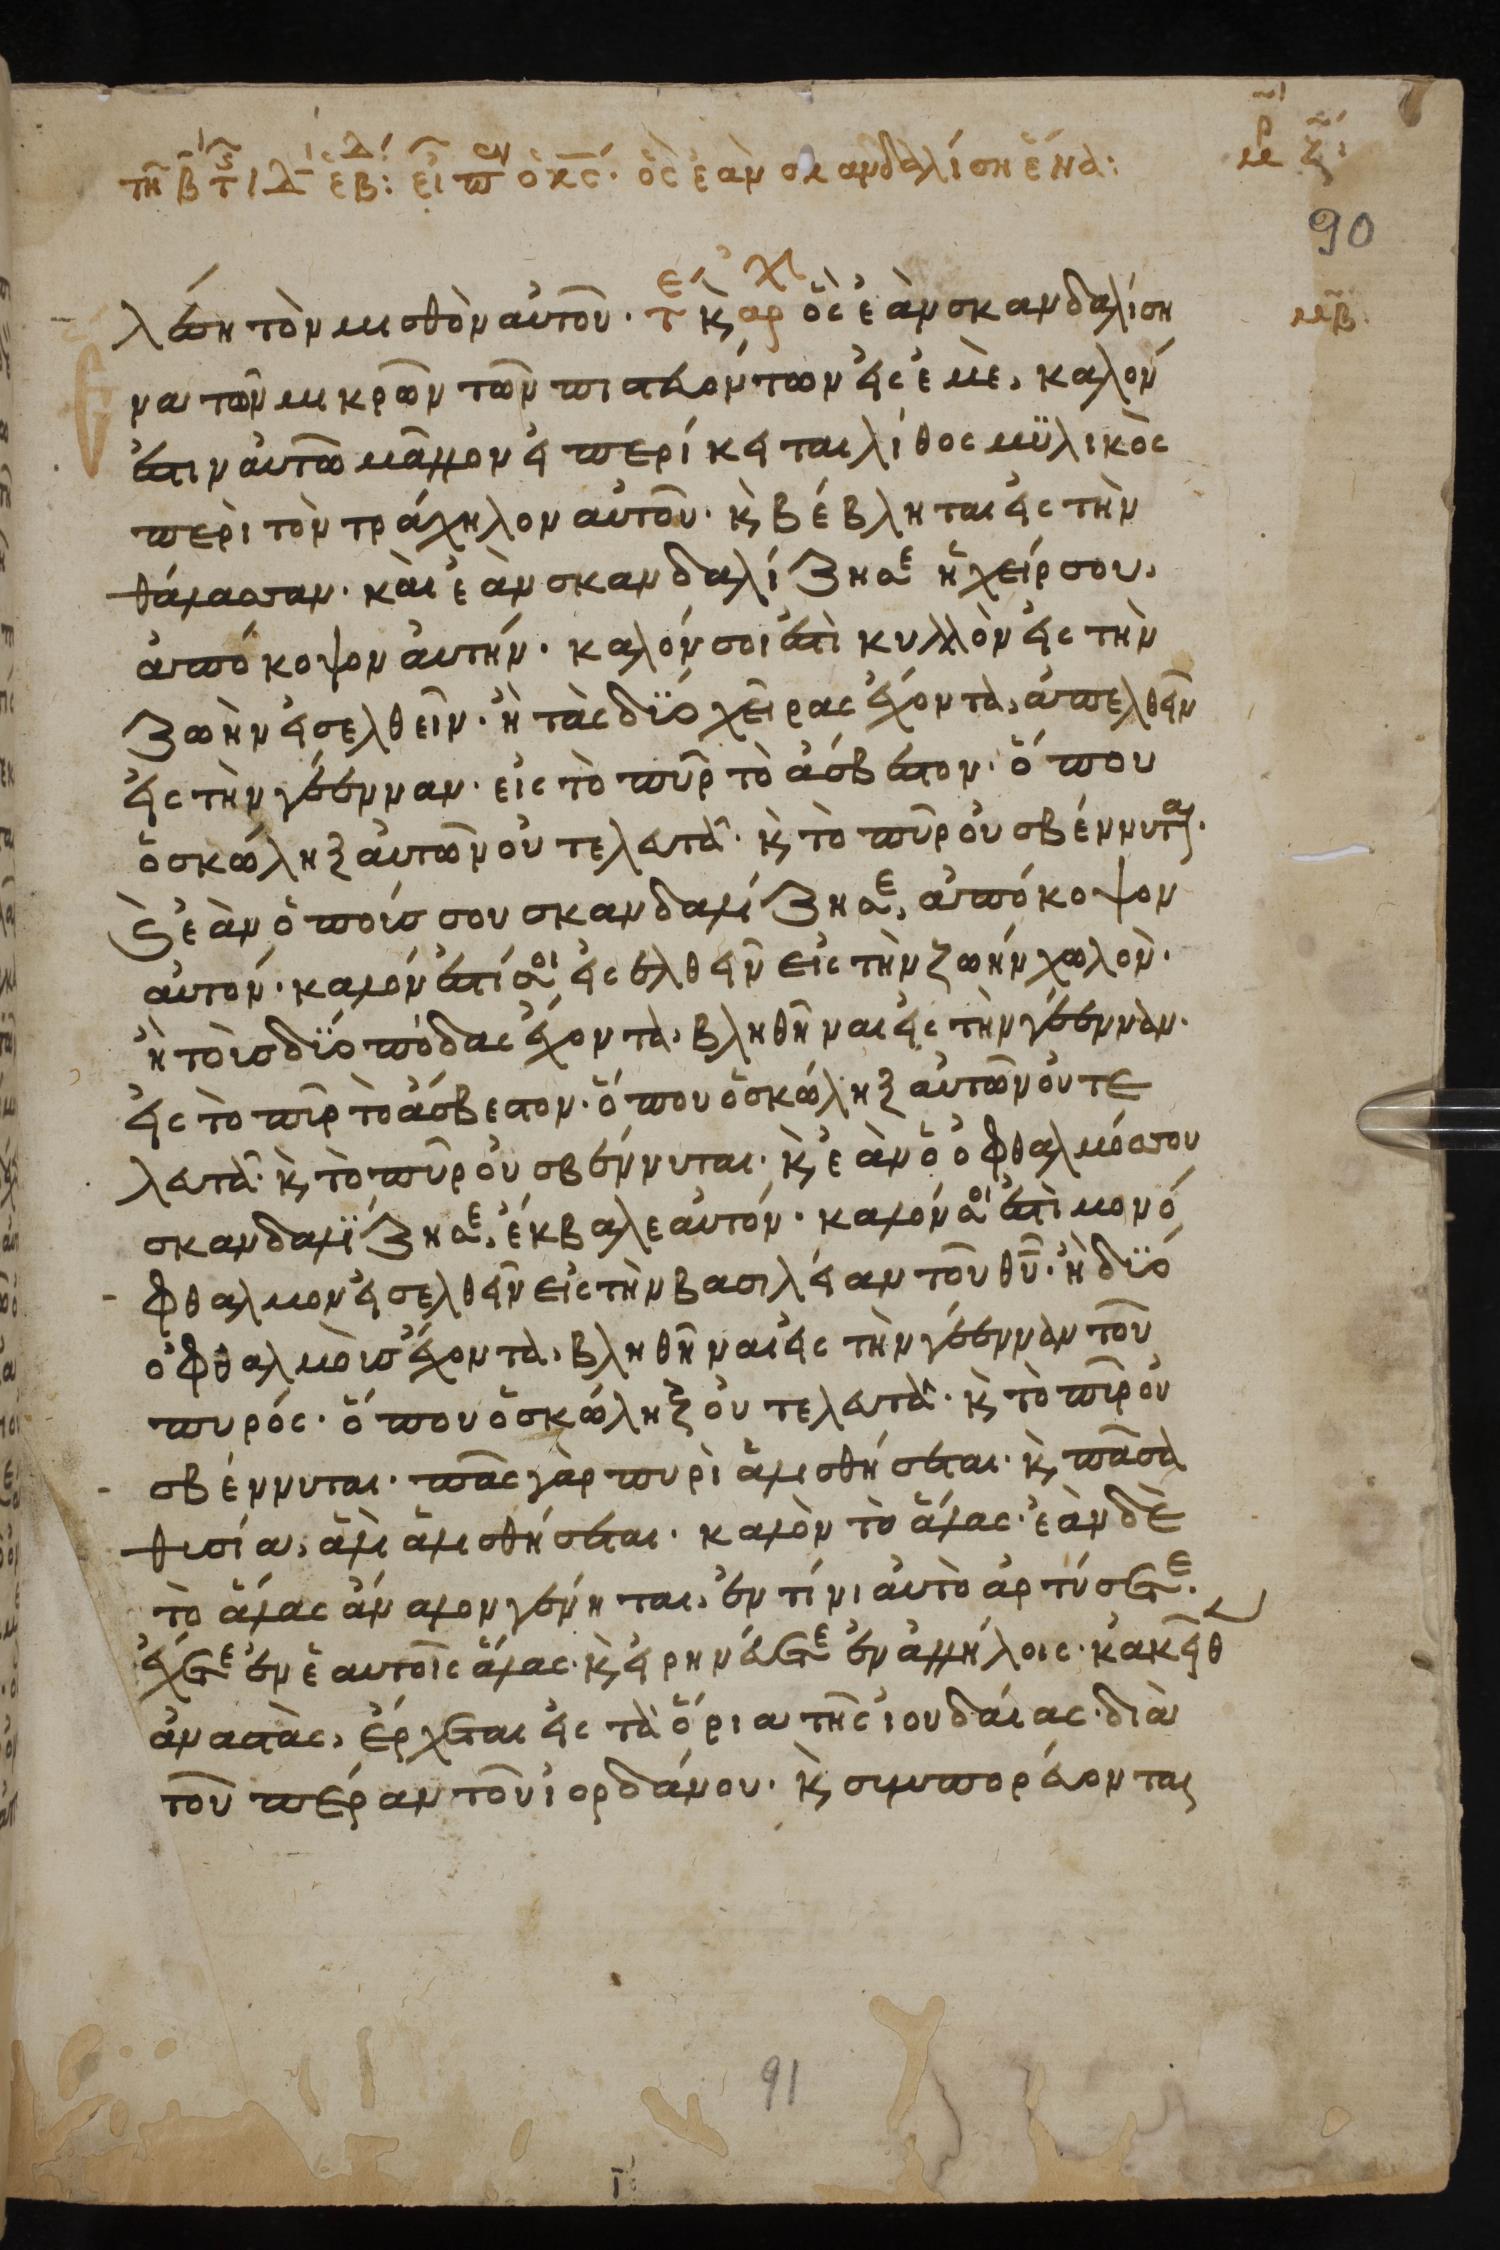 τῆ β τ ιδ ἑβ: εἶπ ὁ κς· ὃς ἐὰν σκανδαλίση ἕνα:
90
λέση τὸν μισθὸν αὐτοῦ· τ κ αρ ὃς ἐὰν σκανδαλίση
ενα τῶν μικρῶν τῶν πιστευόντων εἰς ἐμὲ, καλόν
ἐστιν αὐτῶ μᾶλλον εἰ περίκειται λίθος μϋλικὸς
περὶ τὸν τράχηλον αὐτοῦ· κ βέβληται εἰς τὴν
θάλασσαν· καὶ ἐὰν σκανδαλίζη σε ἡ χείρ σου,
ἀπόκοψον ἀυτήν· καλόν σοι ἐστὶ κυλλὸν εἰς τὴν
ζωὴν εἰσελθεῖν· ἢ τὰς δϋό χεῖρας ἔχοντα, ἀπελθεῖν
εἰς τὴν γέεννναν· εἰς τὸ πῦρ τὸ ἄσβεστον· ὅπου
ὁ σκώληξ ἀυτῶν οὐ τελευτᾶ· κ τὸ πῦρ οὐ σβέννυται·
κ ἐὰν ὁ πούς σου σκανδαλίζη σε, ἀπόκοψον
αὐτόν· καλόν ἐστί σοι εἰς ελθεῖν εἰς τὴν ζωήν χωλὸν·
ἢ τοὺς δϋό πόδας ἔχοντα, βληθῆναι εἰς τὴν γέενναν·
εἰς τὸ πῦρ τὸ ἄσβεστον· ὅπου ὁ σκώληξ ἀυτῶν οὐ τε
λευτᾶ· κ τὸ πῦρ οὐ σβέννυται· κ ἐὰν ὁ ὀφθαλμός σου
σκανδαλίζη σε, ἔκβαλε αὐτόν· καλόν σοι ἐστὶ μονό
φθαλμον εἰσελθεῖν εἰς τὴν βασιλείαν τοῦ θυ· ἢ δϋό
ὀφθαλμοὺς ἔχοντα, βληθῆναι εἰς τὴν γέενναν τοῦ
πυρός· ὅπου ὁ σκώληξ οὐ τελευτᾶ· κ τὸ πῦρ οὐ
σβέννυται· πᾶς γὰρ πυρὶ ἁλισθήσεται· κ πᾶσα
θυσία, ἁλὶ ἁλισθήσεται· καλὸν τὸ ἅλας· ἐὰν δὲ
τὸ ἅλας ἄναλον γένηται, ἐν τίνι ἀυτὸ ἀρτύσετε·
ἔχετε ἐν ἑαυτοῖς ἅλας· κ εἰρηνεύετε ἐν ἀλλήλοις· κἀκεῖθ
ἀναστὰς, ἔρχεται εἰς τὰ ὅρια τῆς ἰουδαίας· διὰ
τοῦ πέραν τοῦ ἰορδάνου· κ συμπορεύονται
91